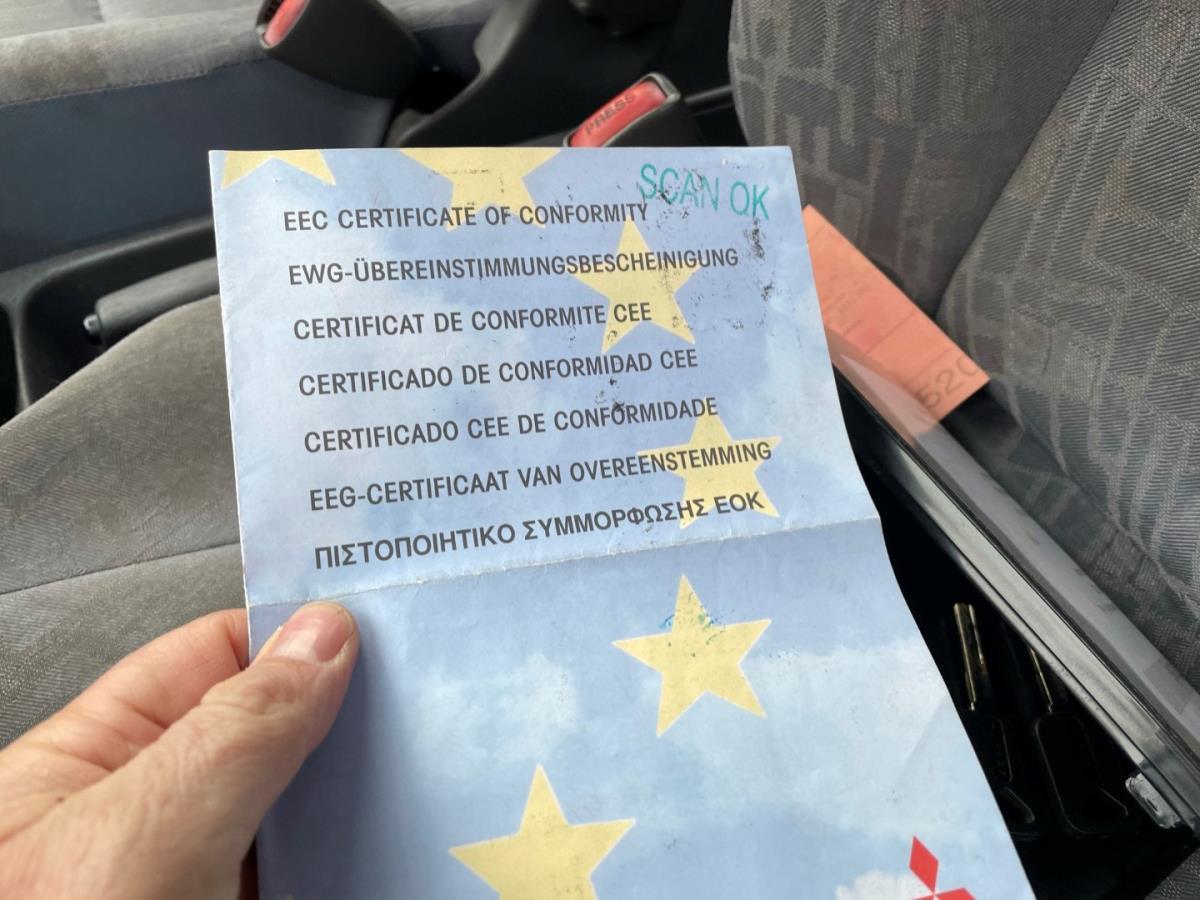 PRESS
SCAN OK
EEC CERTIFICATE OF CONFORMITY
EWG-ÜBEREINSTIMMUNGSBESCHEINIGUNG
CERTIFICAT DE CONFORMITE CEE
CERTIFICADO DE CONFORMIDAD CEE
CERTIFICADO CEE DE CONFORMIDADE
EEG-CERTIFICAAT VAN OVEREENSTEMMING
ΠΙΣΤΟΠΟΙΗΤΙΚΟ ΣΥΜΜΟΡΦΩΣΗΣ ΕΟΚ